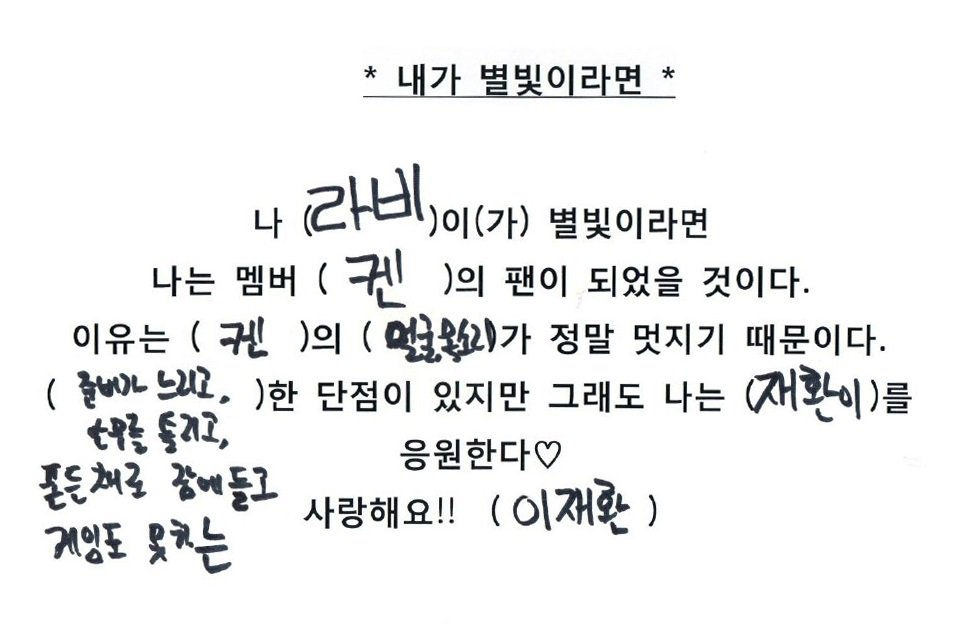 * 내가 별빛이라면 *
나 (라비)이(가) 별빛이라면
나는 멤버 ( 켄 )의 팬이 되었을 것이다.
이유는 ( 켄 )의 ( 얼굴,목소리)가 정말 멋지기 때문이다.
( 준비가 느리고, )한 단점이 있지만 그래도 나는 (재환이)를
안무를 틀리고,
응원한다♡
폰든채로 잠에들고
사랑해요!! ( 이재환 )
게임도 못하는